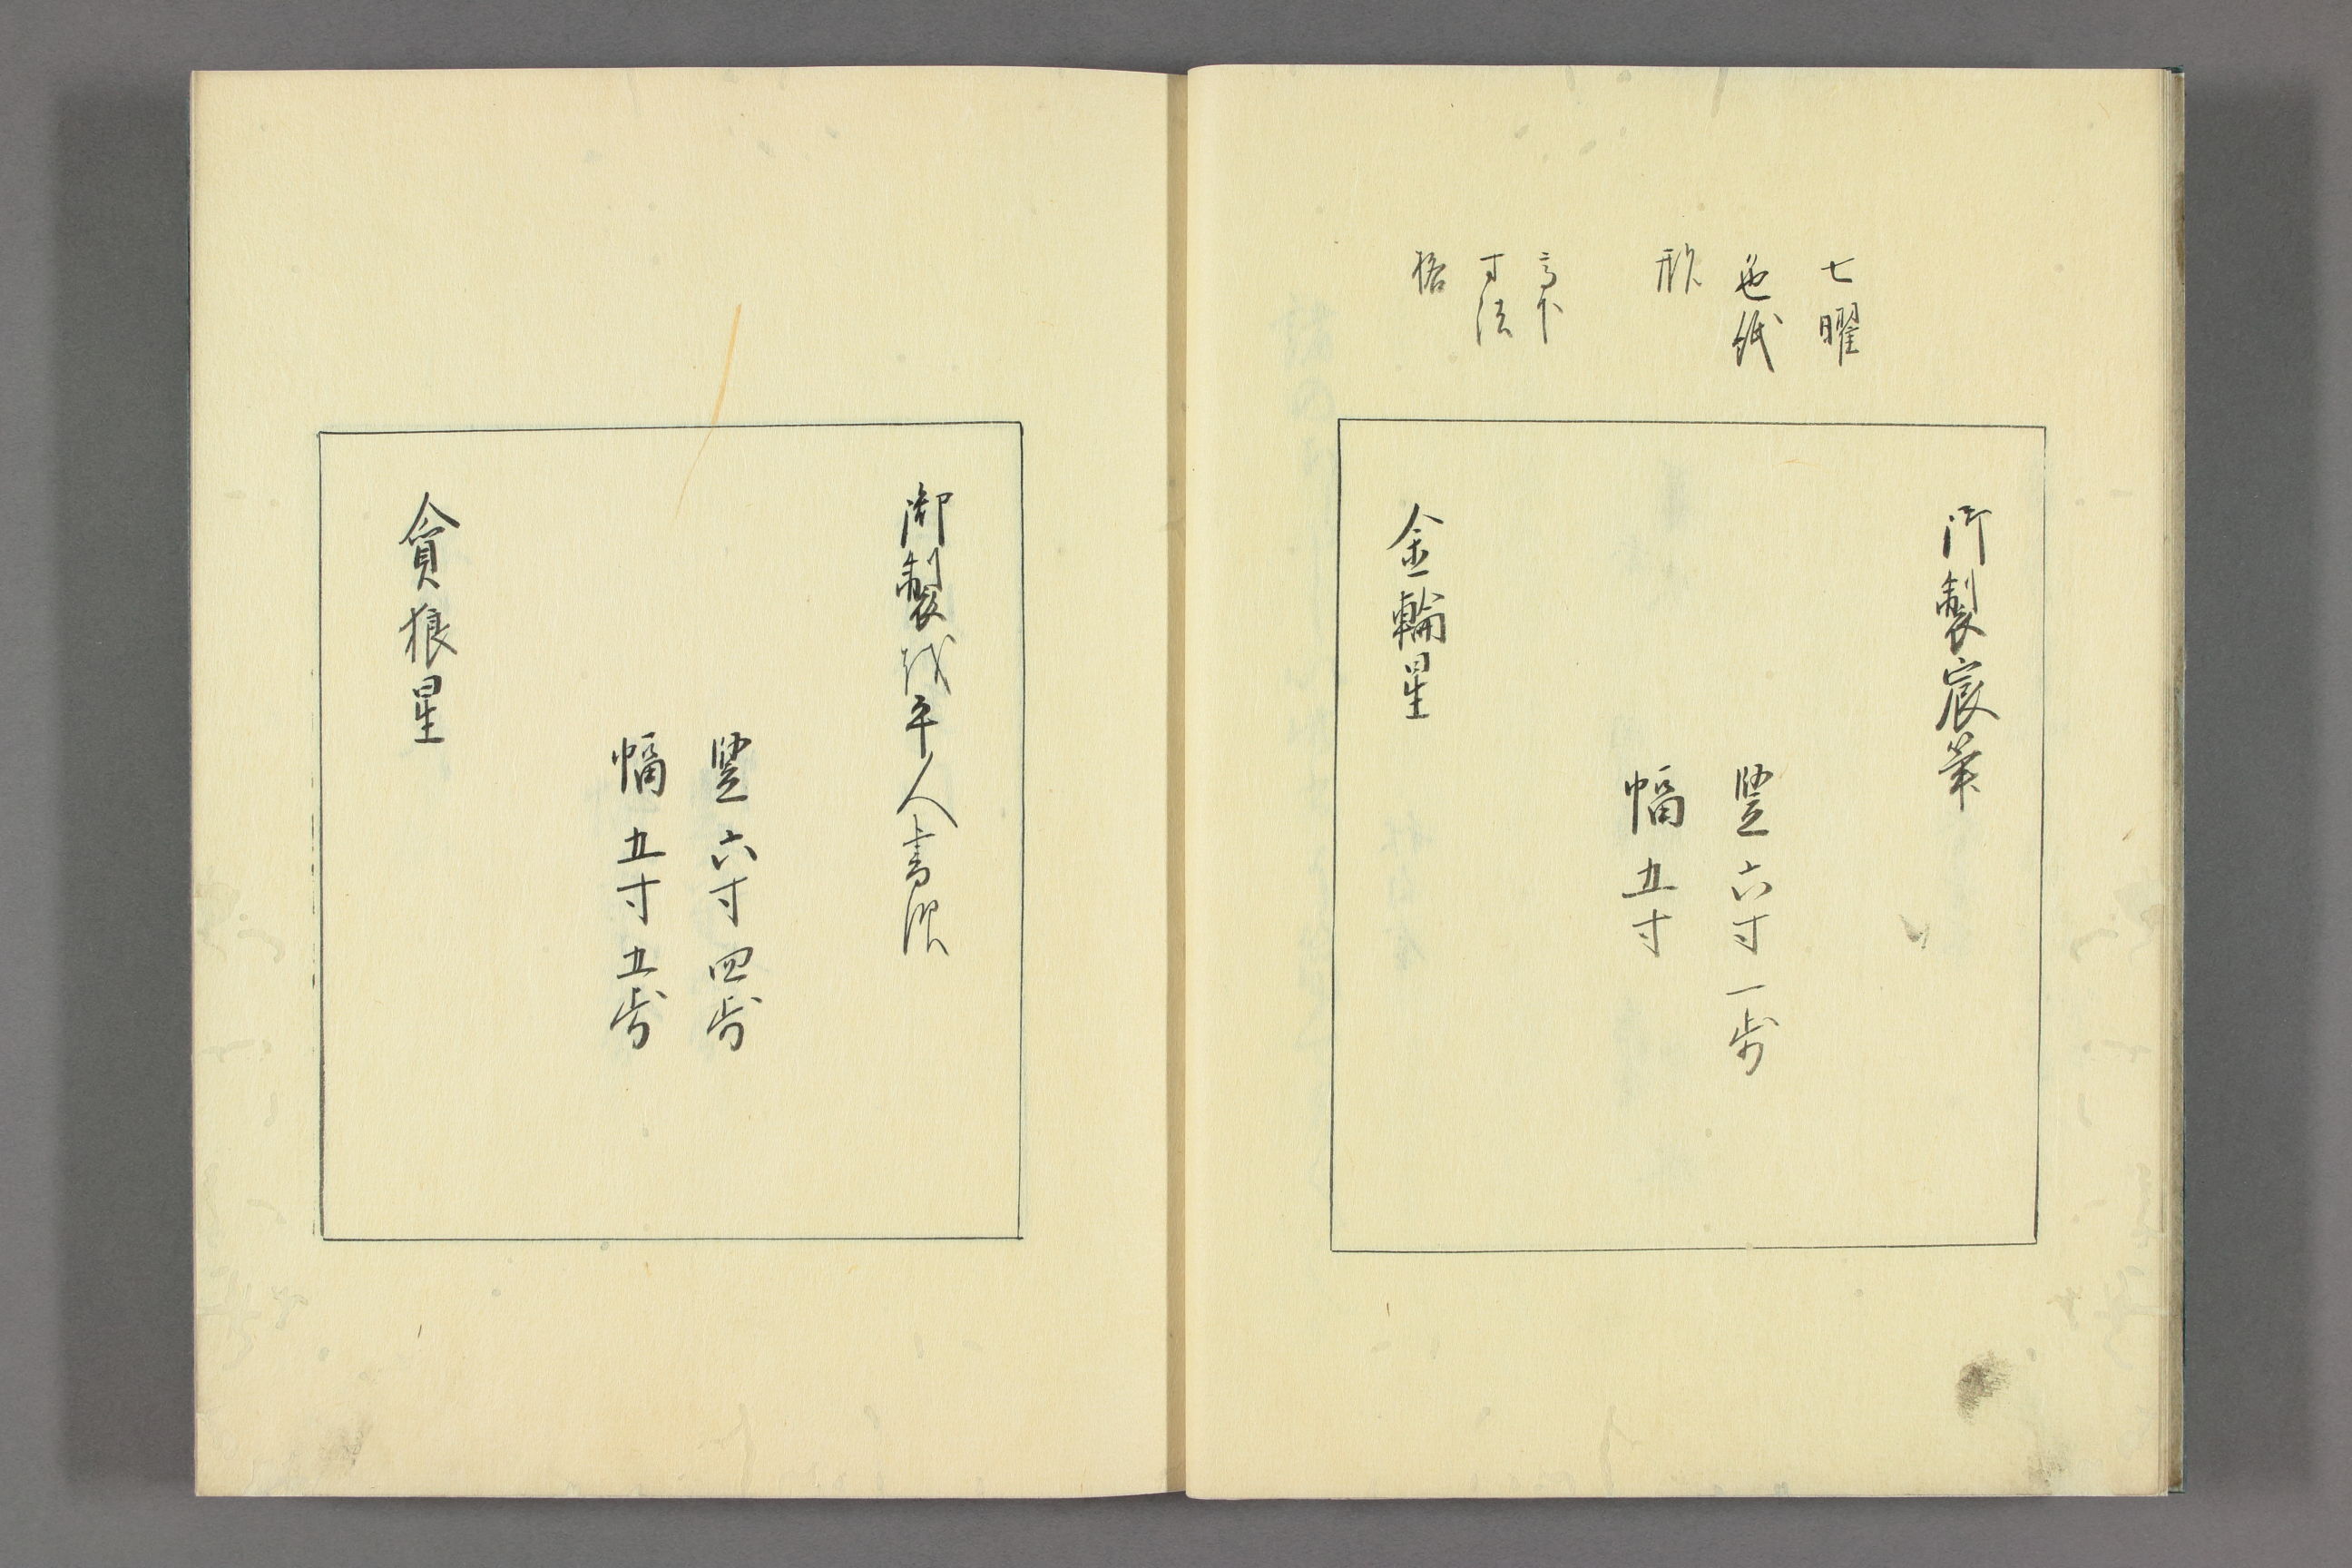 七曜
色紙
形
高下
寸法
格
御製宸筆
竪六寸一歩
幅五寸
金輪星
御製或平人書次
竪六寸四歩
幅五寸五歩
貪狼星